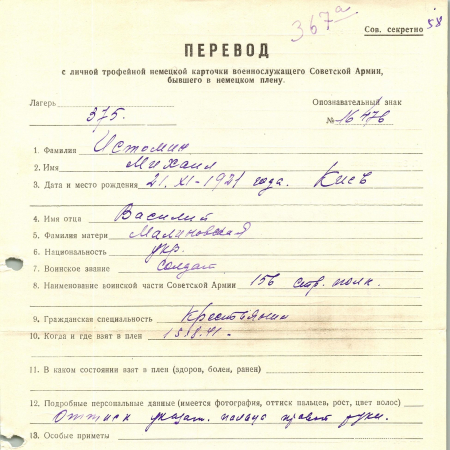 367а
Сов. секретно 58
ПЕРЕВОД
с личной трофейной немецкой карточки военнослужащего Советской Армии,
бывшего в немецком плену.
Лагерь Опознавательный знак
375. № 16476
1. Фамилия Истомин
2. Имя Михаил
3. Дата и место рождения 21.XI-1921 года. Киев
4. Имя отца Василий
5. Фамилия матери Малиновская
6. Национальность укр.
7. Воинское звание солдат
8. Наименование воинской части Советской Армии 156 стр. полк.
9. Гражданская специальность Крестьянин
10. Когда и где взят в плен 15.8.41-
11. В каком состоянии взят в плен (здоров, болен, ранен)
12. Подробные персональные данные (имеется фотография, оттиск пальцев, рост, цвет волос)
Оттиск указат. пальца правой руки.
13. Особые приметы